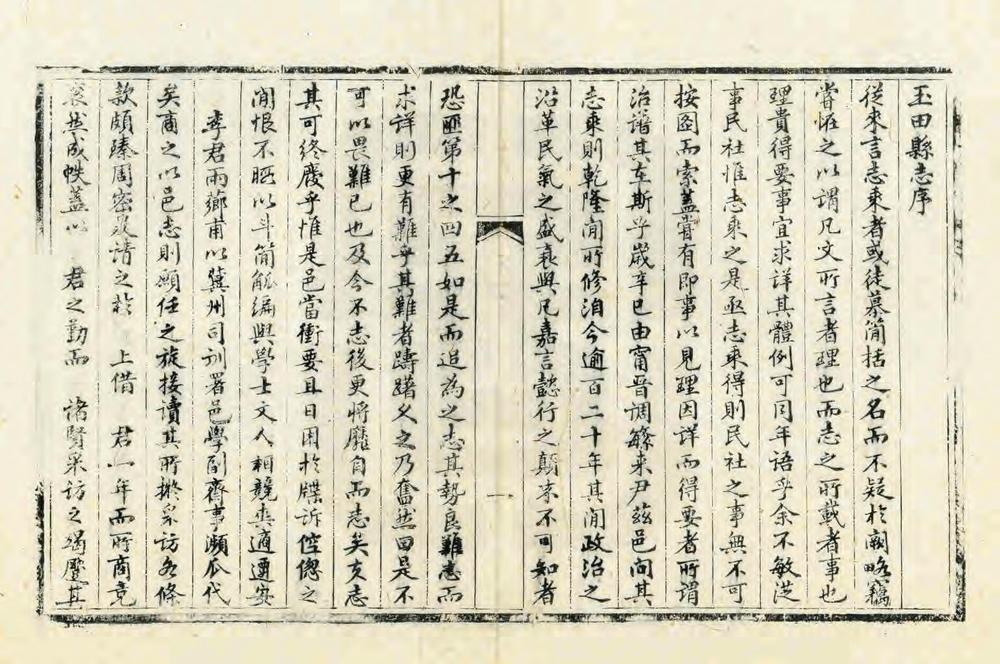 玉田縣志序
從來言志乘者或徒慕簡括之名而不疑於闕略竊
嘗怪之以謂凡文所言者理也而志之所載者事也
理貴得要事宜求詳其體例可同年語乎余不敏涖
事民社惟志乘之是亟志乘得則民社之事無不可
按圖而索蓋嘗有即事以見理因詳而得要者所謂
治譜其在斯乎歲辛巳由甯晉調繁来尹茲邑問其
志乘則乾隆間所修洎今逾百二十年其間政治之
沿革民氣之盛衰與凡嘉言懿行之顛末不可知者
恐匪第十之四五如是而追為之志其勢良難志而
求詳則更有難乎其難者躊躇久之乃奮然曰是不
可以畏難已也及今不志後更將靡自而志矣亥志
其可終廢乎惟是邑當衝要且日困於牒訴倥傯之
間恨不暇以斗筲觚編與學士文人相競爽適遵安
李君雨薌甫以冀州司訓署邑學副齋事瀕瓜代
矣商之以邑志則願任之旋接讀其所擬采訪各條
款頗臻周密爰請之於 上借 君一年而所商竟
裒然成帙蓋以 君之勤而 諸賢采訪之竭蹷其
一